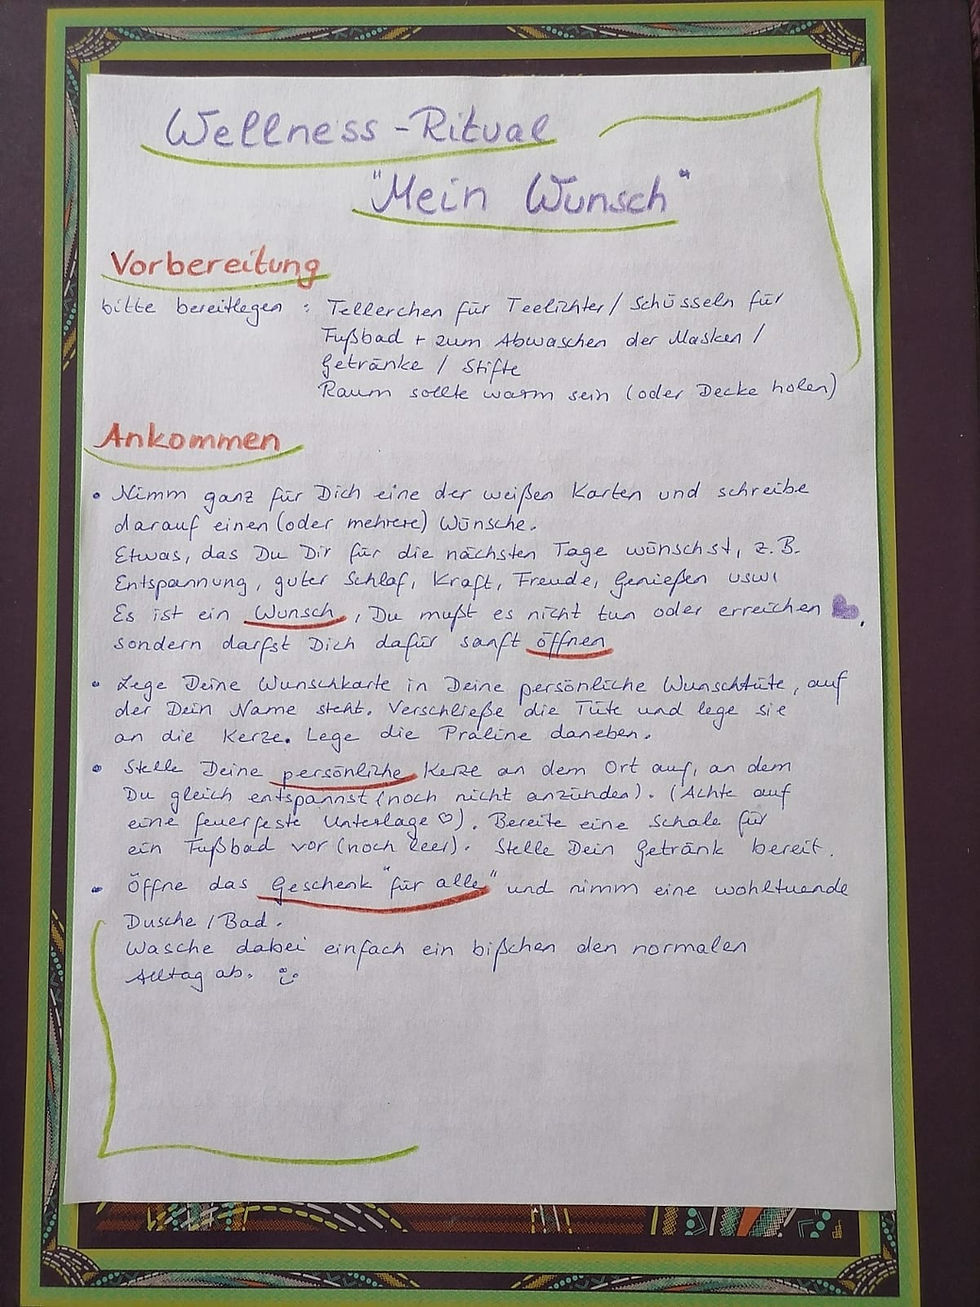 Wellness-Ritual
"Mein Wunsch"
Vorbereitung
bitte bereitlegen : Tellerchen für Teelichter / Schüsseln für
Fußbad + zum Abwaschen der Masken /
Getränke / Stifte
Raum sollte warm sein (oder Decke holen)
Ankommen
• Nimm ganz für Dich eine der weißen Karten und schreibe
darauf einen (oder mehrere) Wünsche.
Etwas, das Du Dir für die nächsten Tage wünschst, z.B.
Entspannung, guter Schlaf, Kraft, Freude, Genießen usw.
Es ist ein Wunsch, Du mußt es nicht tun oder erreichen 💜,
sondern darfst Dich dafür sanft öffnen
• Lege Deine Wunschkarte in Deine persönliche Wunschtüte, auf
der Dein Name steht. Verschließe die Tüte und lege sie
an die Kerze. Lege die Praline daneben.
• Stelle Deine persönliche Kerze an dem Ort auf, an dem
Du gleich entspannst (noch nicht anzünden). (Achte auf
eine feuerfeste Unterlage ♡). Bereite eine Schale für
ein Fußbad vor (noch leer). Stelle Dein Getränk bereit.
• Öffne das Geschenk "für alle" und nimm eine wohltuende
Dusche / Bad.
Wasche dabei einfach ein bißchen den normalen
Alltag ab. :)